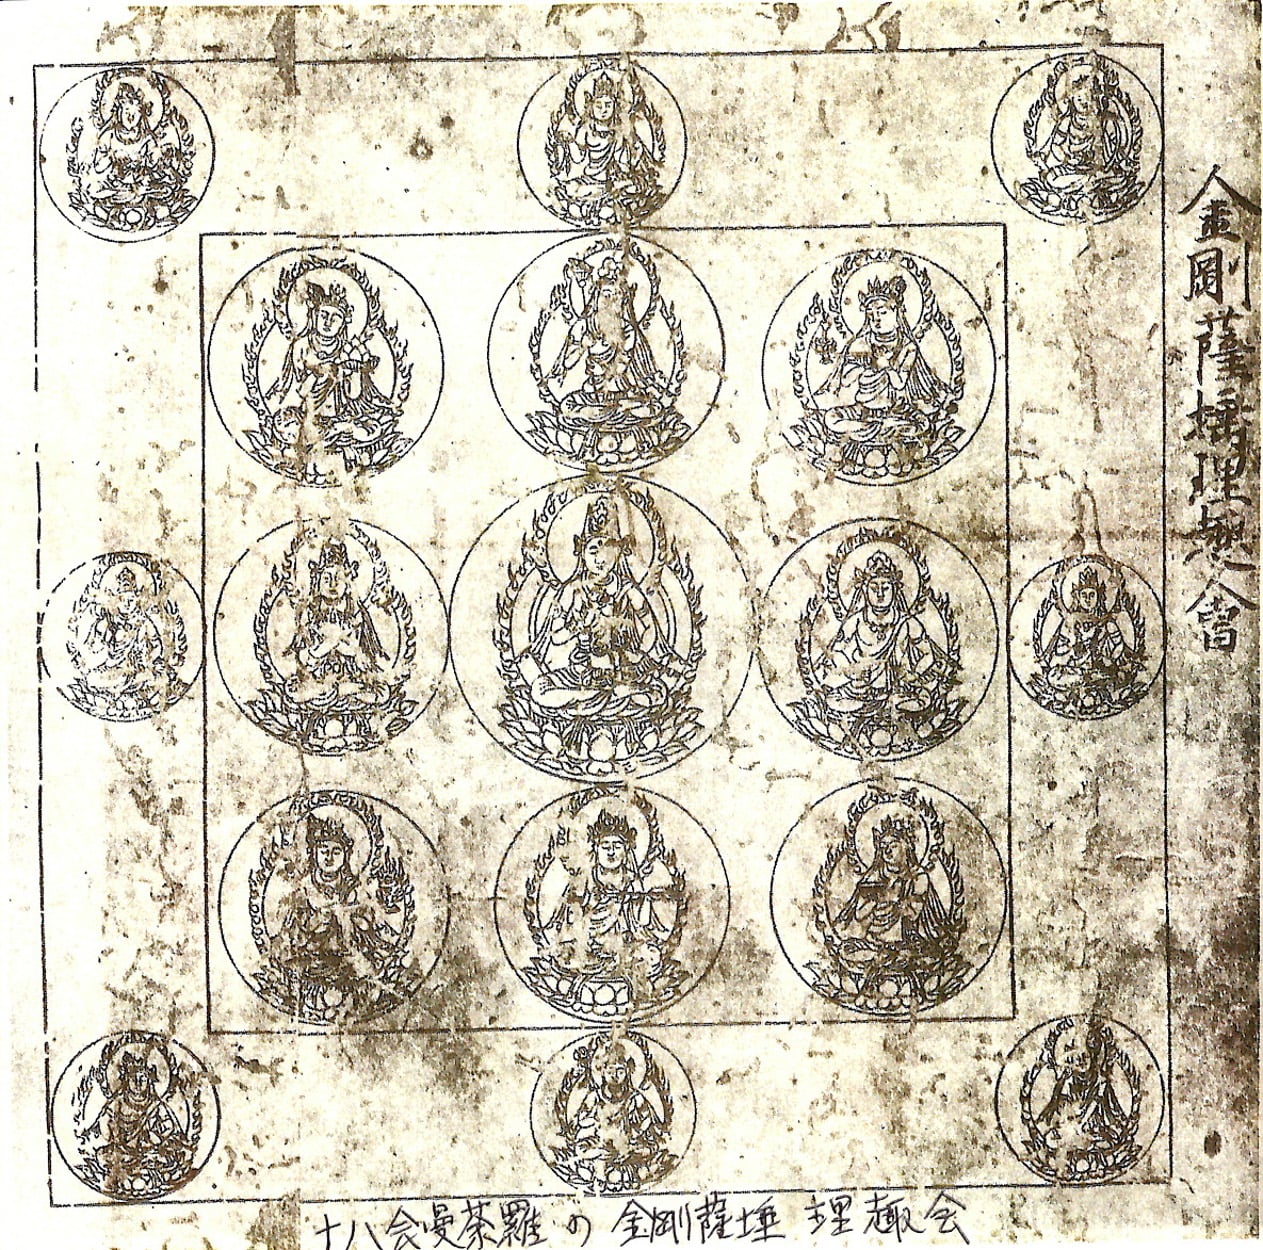 金剛薩埵理趣會
十八会曼荼羅の金剛薩埵理趣会